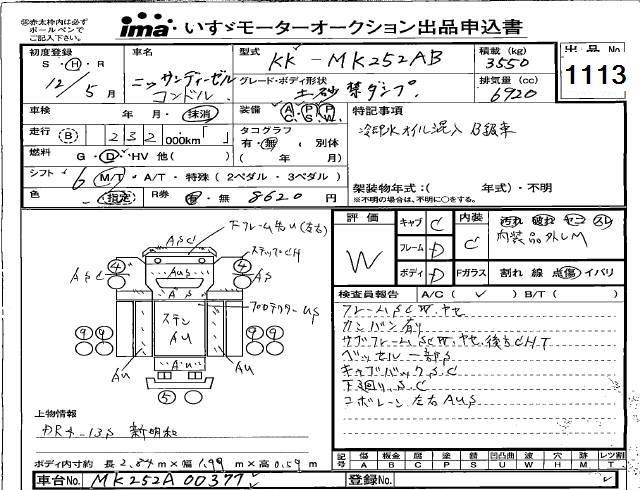 ※赤太枠内は必ず
ボールペンで
ご記入下さい。
ima いすゞモーターオークション出品申込書
初度登録
S ・ H ・ R
12/5月
車名
ニッサンディーゼル
コンドル
型式
KK-MK252AB
積載 (kg)
3550
出品No
1113
グレード・ボディ形状
土砂禁ダンプ
排気量 (cc)
6920
車検
年 月・抹消
装備
AC ・ PS ・ PW
特記事項
冷却水オイル混入 B級車
走行
B 232 000km
タコグラフ
有・無 別体
( 年 月)
燃料
G ・ D ・ HV 他( )
シフト
6 M/T ・ A/T ・ 特殊 ( 2ペダル ・ 3ペダル )
架装物年式:( 年式)・不明
※不明の場合は、不明に○をする。
色
(指定)
R券
有・無 8620 円
評価
W
キャブ C
フレーム D
ボディ D
内装
C
汚れ 破れ ヤニ スレ
内装品外しM
Fガラス
割れ 線 点 傷 イバリ
検査員報告
A/C ( ✓ ) B/T ( )
フレームSCW.ヤセ
カンバン有り
サブフレームSCW.ヤセ.後方CHT
ベッセル一部S
キャブバックS.C
下回りS.C
コボレーン左右AUS
下フレーム先U(左右)
ASC
ステップCH
4
AUS
4
ASC
AS
AS
プロテクターUS
ステン
AU
9 9
9 9
AU
AU
AU
5
上物情報
DR4-13S 新明和
ボディ内寸約 長 2.84 m×幅 1.99 m×高 0.59 m
記号
傷 板金 凹 塗 錆 凹凸曲 波 穴 跡 レツ割
A B C P S U W H M T
車台No. MK252A 00377
登録No.